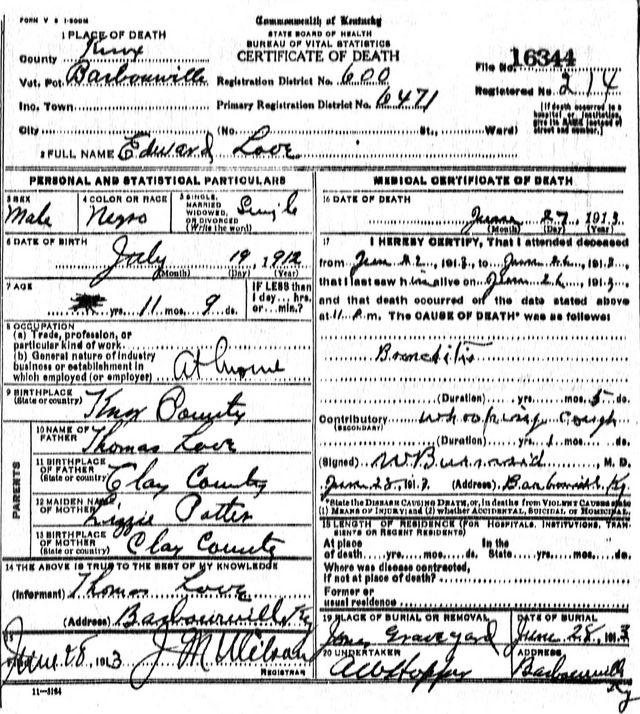 FORM V S 1-500M
Commonwealth of Kentucky
STATE BOARD OF HEALTH
BUREAU OF VITAL STATISTICS
CERTIFICATE OF DEATH
1 PLACE OF DEATH
County Knox
Vot. Pct. Barbourville
Inc. Town
City
Registration District No. 600
Primary Registration District No. 6471
(No. St., Ward)
File No. 16344
Registered No. 214
[If death occurred in a hospital or institution, give its NAME instead of street and number.]
2 FULL NAME Edward Love
PERSONAL AND STATISTICAL PARTICULARS
3 SEX
Male
4 COLOR OR RACE
Negro
5 SINGLE, MARRIED WIDOWED, OR DIVORCED (Write the word)
Single
6 DATE OF BIRTH
July 19, 1912
(Month) (Day) (Year)
7 AGE
yrs. 11 mos. 9 ds.
IF LESS than 1 day... hrs. or... min.?
8 OCCUPATION
(a) Trade, profession, or particular kind of work
(b) General nature of industry business or establishment in which employed (or employer)
At home
9 BIRTHPLACE
(State or country)
Knox County
PARENTS
10 NAME OF FATHER
Thomas Love
11 BIRTHPLACE OF FATHER
(State or country)
Clay County
12 MAIDEN NAME OF MOTHER
Lizzie Potter
13 BIRTHPLACE OF MOTHER
(State or country)
Clay County
14 THE ABOVE IS TRUE TO THE BEST OF MY KNOWLEDGE
(Informant) Thomas Love
(Address) Barbourville Ky
15
June 28, 1913 J M Wilson
REGISTRAR
11-3184
MEDICAL CERTIFICATE OF DEATH
16 DATE OF DEATH
June 27, 1913
(Month) (Day) (Year)
17 I HEREBY CERTIFY, That I attended deceased
from June 22, 1913, to June 26, 1913,
that I last saw him alive on June 26, 1913,
and that death occurred on the date stated above
at 11 P.m. The CAUSE OF DEATH* was as follows:
Bronchitis
(Duration) yrs. mos. 5 ds.
Contributory Whooping Cough
(SECONDARY)
(Duration) yrs. 1 mos. ds.
(Signed) M. D.
June 28, 1913 (Address) Barbourville Ky.
*State the DISEASE CAUSING DEATH, or, in deaths from VIOLENT CAUSES state (1) MEANS OF INJURY; and (2) whether ACCIDENTAL, SUICIDAL or HOMICIDAL
18 LENGTH OF RESIDENCE (FOR HOSPITALS, INSTITUTIONS, TRANSIENTS OR RECENT RESIDENTS)
At place of death yrs. mos. ds. In the State yrs. mos. ds.
Where was disease contracted,
if not at place of death?
Former or usual residence
19 PLACE OF BURIAL OR REMOVAL
Graveyard
DATE OF BURIAL
June 28, 1913
20 UNDERTAKER
A W Hopper
ADDRESS
Barbourville Ky